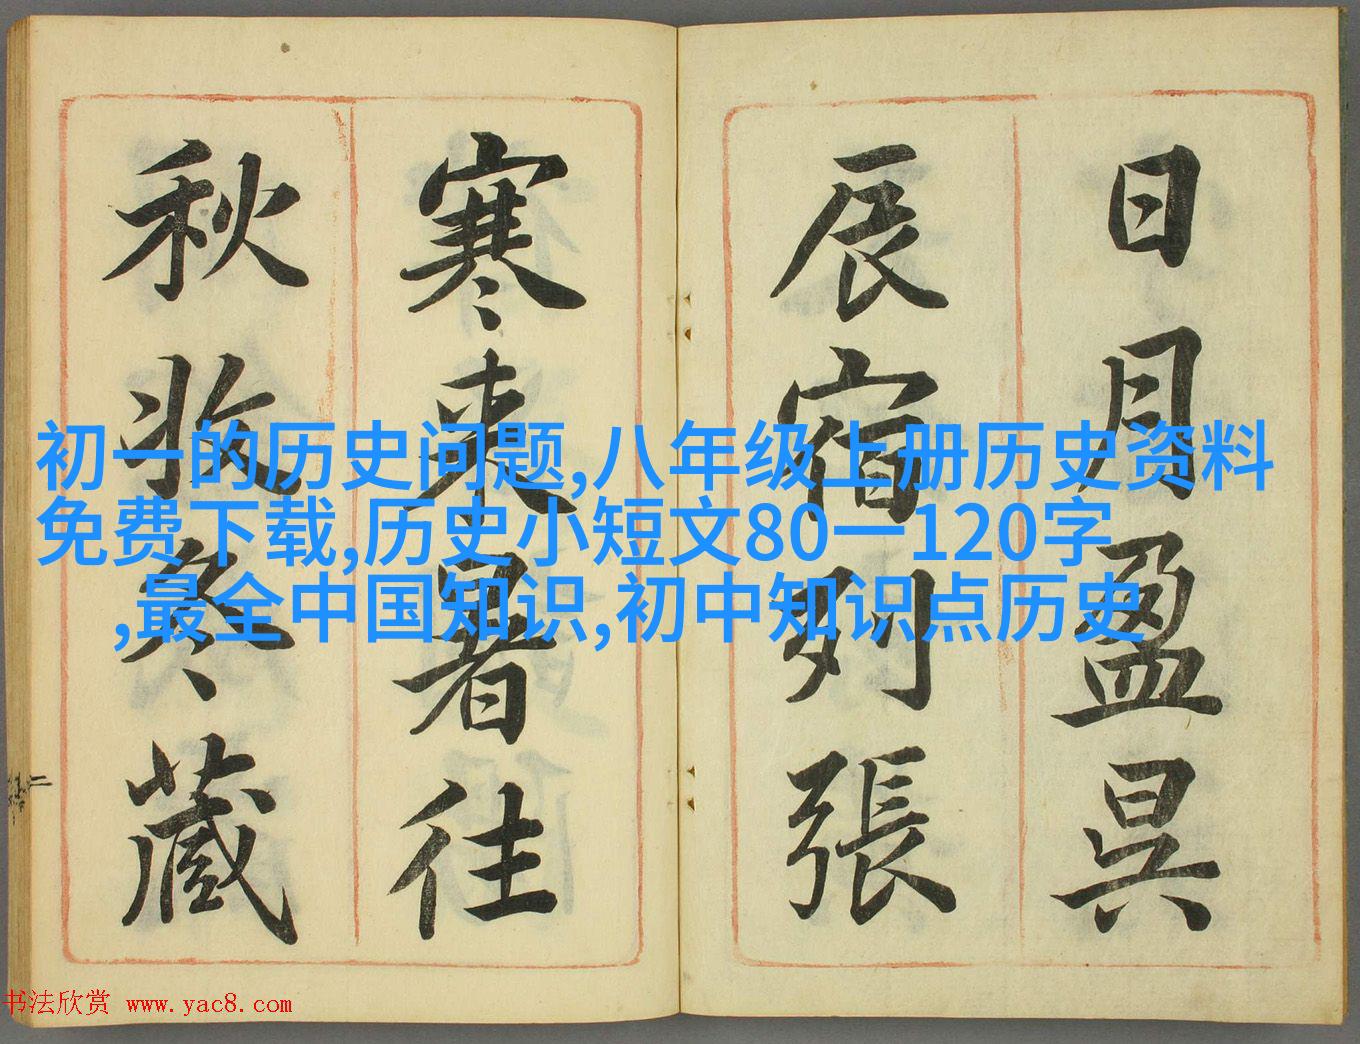 日月盈昃
辰宿列張
寒来暑往
秋收冬藏
初一的历史问题,八年级上册历史资料
免费下载,历史小短文80一120字
,最全中国知识,初中知识点历史
书法欣赏 www.yac8.com